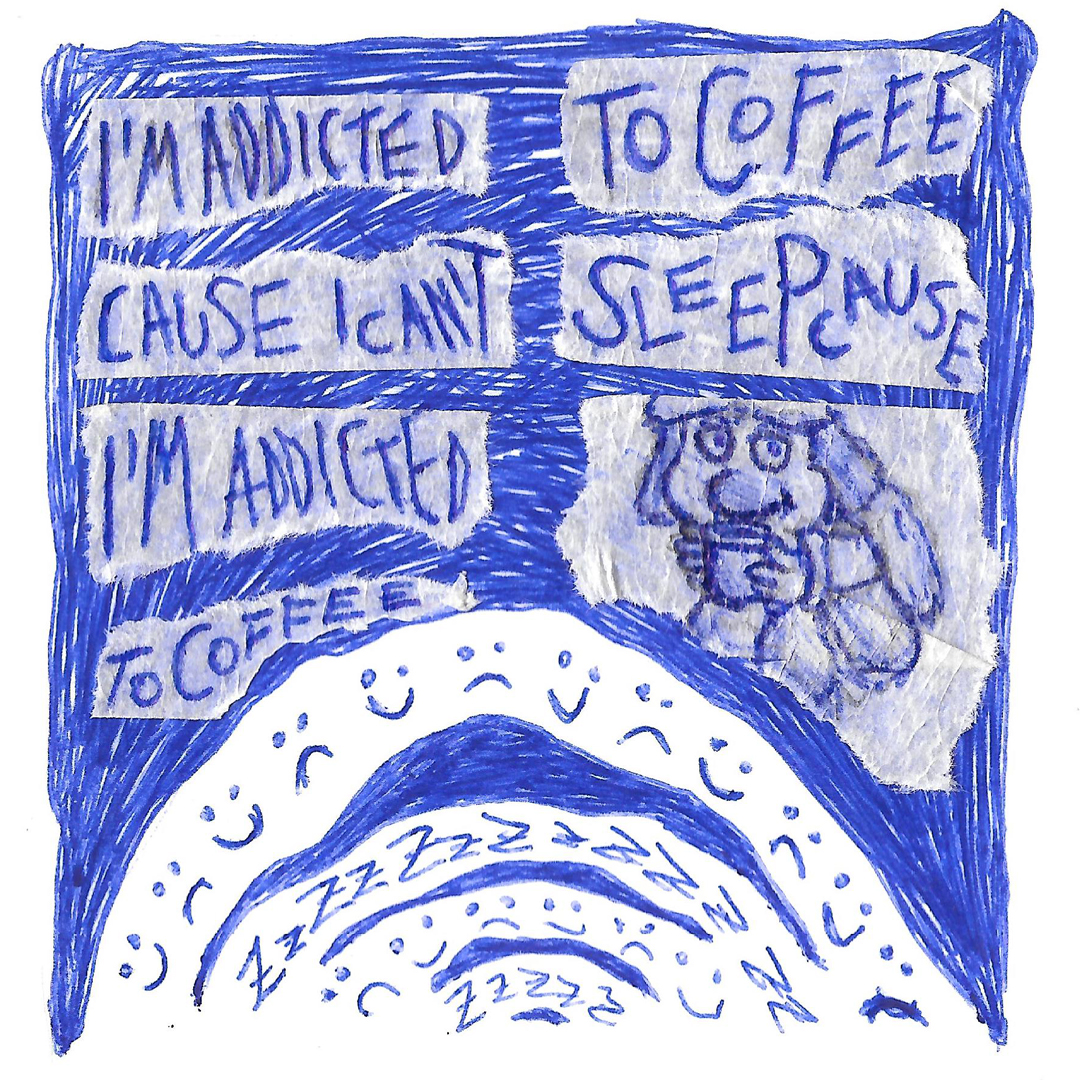 I'M ADDICTED TO COFFEE
CAUSE I CAN'T SLEEP CAUSE
I'M ADDICTED
TO COFFEE
ZzZZzzZZzZzzZZzZzZZ
ZZZZZZ